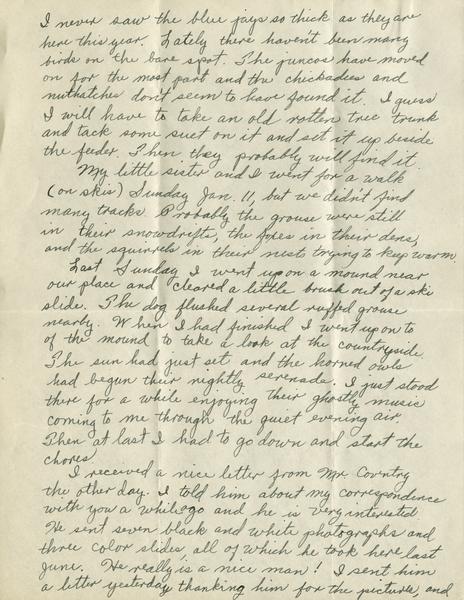 I never saw the blue jays so thick as they are
here this year. Lately there haven't been many
birds on the bare spot. The juncos have moved
on for the most part and the chickadees and
nuthatches don't seem to have found it. I guess
I will have to take an old rotten tree trunk
and tack some suet on it and set it up beside
the feeder. Then they probably will find it.
My little sister and I went for a walk
(on skis) Sunday Jan. 11, but we didn't find
many tracks. Probably the grouse were still
in their snowdrifts, the foxes in their dens,
and the squirrels in their nests trying to keep warm.
Last Sunday I went up on a mound near
our place and cleared a little brush out of a ski
slide. The dog flushed several ruffed grouse
nearby. When I had finished I went up on to
of the mound to take a look at the countryside.
The sun had just set and the horned owls
had begun their nightly serenade. I just stood
there for a while enjoying their ghostly music
coming to me through the quiet evening air.
Then at last I had to go down and start the
chores.
I received a nice letter from Mr. Coventry
the other day. I told him about my correspondence
with you a while ago and he is very interested
He sent seven black and white photographs and
three color slides, all of which he took here last
June. He really is a nice man! I sent him
a letter yesterday thanking him for the picture, and